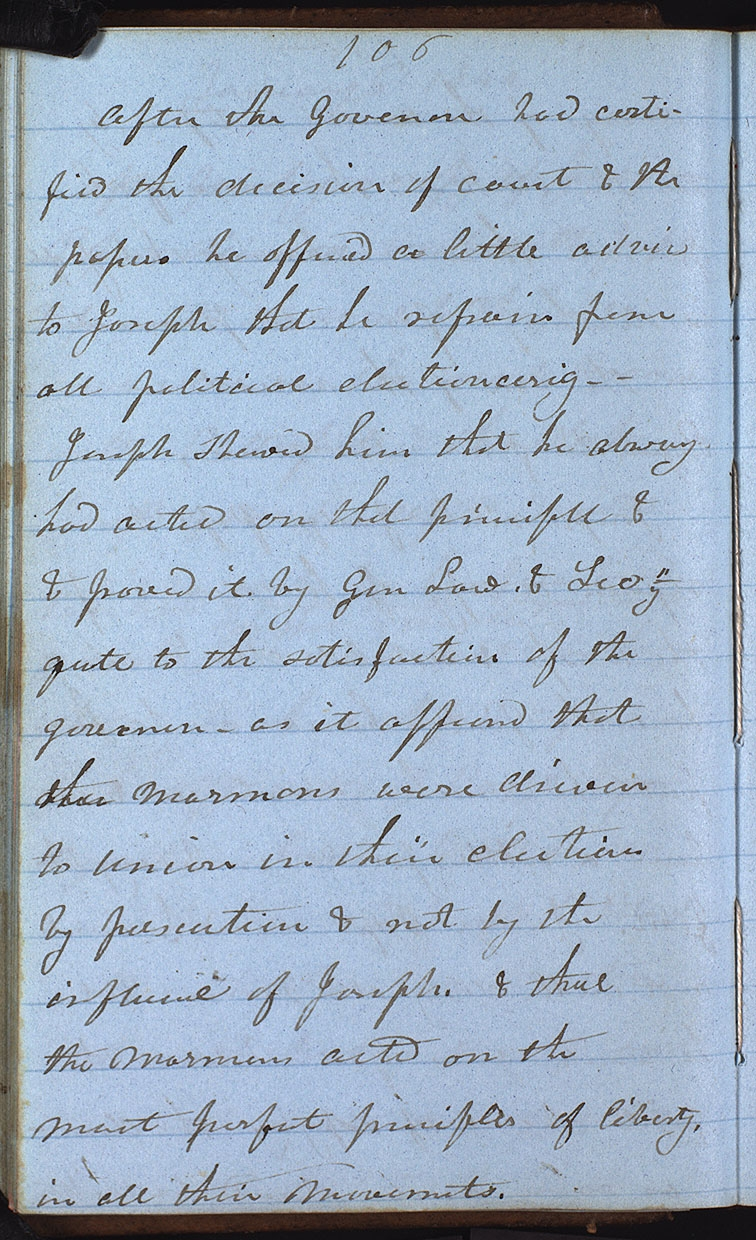 106
After the Govenor had certi-
fied the decision of court & the
papers he offered a little advice
to Joseph that he refrain from
all political electioneerig--
Joseph shewed him that he always
had acted on that principle &
& proved it by Gen Law. &
quite to the satisfaction of the
governor - as it appeared that
the Marmons were driven
to union in their elections
by persecution & not by the
influence of Joseph. & that
the Mormons acted on the
most perfect principles of liberty,
in all their movements.